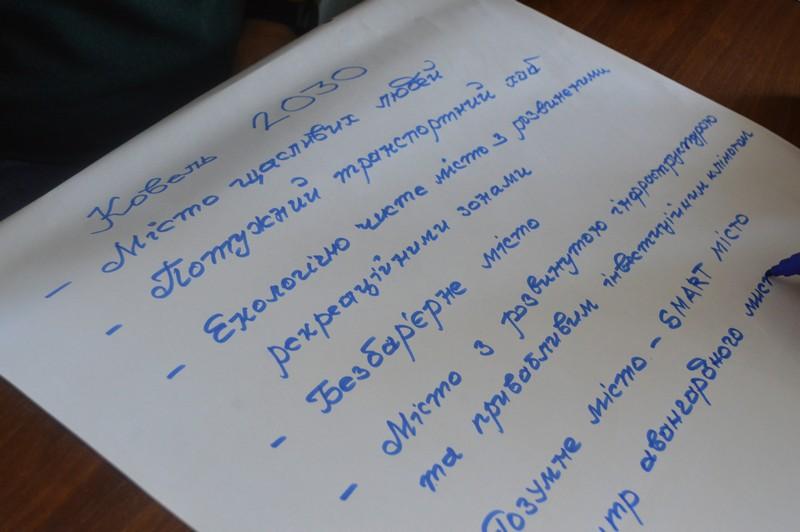 Ковель 2030
- Місто щасливих людей
- Потужний транспортний хаб
- Екологічно чисте місто з розвиненими
рекреаційними зонами
- Безбар'єрне місто
- Місто з розвинутою інфраструктурою
та привабливим інвестиційним кліматом
Розумне місто - SMART місто
авангардного